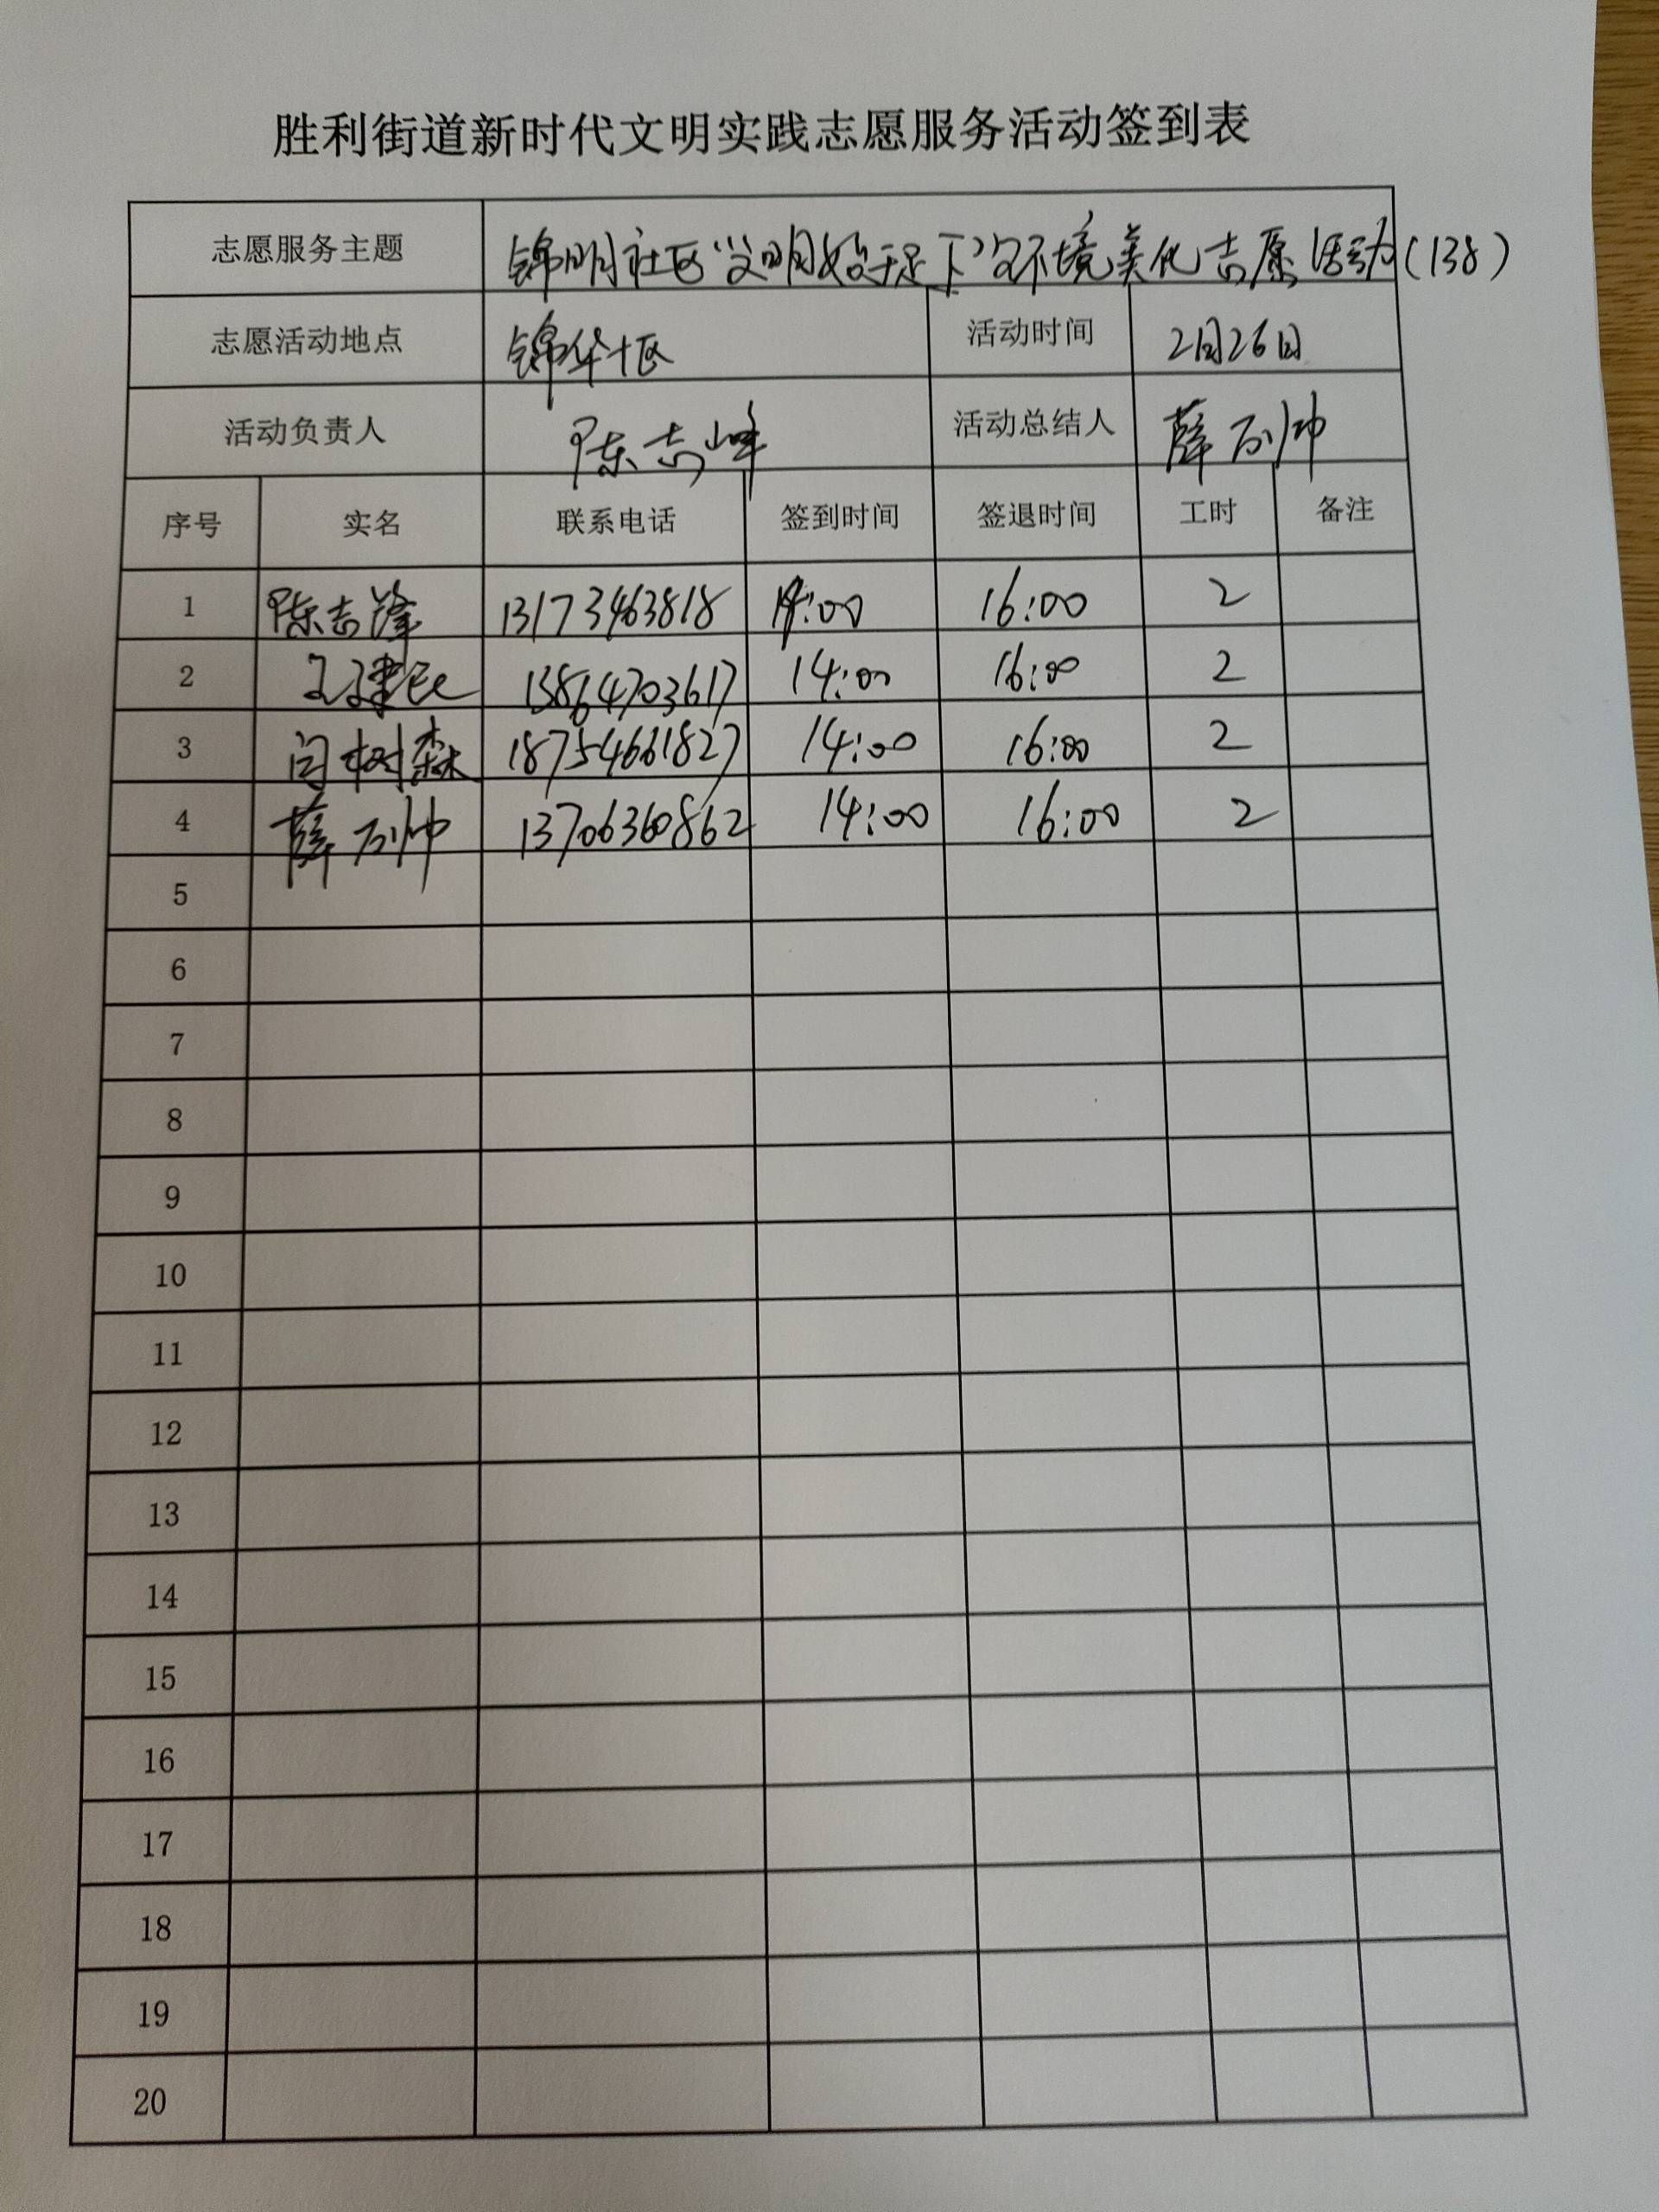 胜利街道新时代文明实践志愿服务活动签到表
志愿服务主题 锦明社区“文明始于足下”环境美化志愿活动(138)
志愿活动地点 锦华十区 活动时间 2月26日
活动负责人 陈志峰 活动总结人 薛万帅
序号 实名 联系电话 签到时间 签退时间 工时 备注
1 陈志峰 13173463818 14:00 16:00 2
2 王建民 13864703617 14:00 16:00 2
3 闫树森 18754661827 14:00 16:00 2
4 薛万帅 13706360862 14:00 16:00 2
5
6
7
8
9
10
11
12
13
14
15
16
17
18
19
20